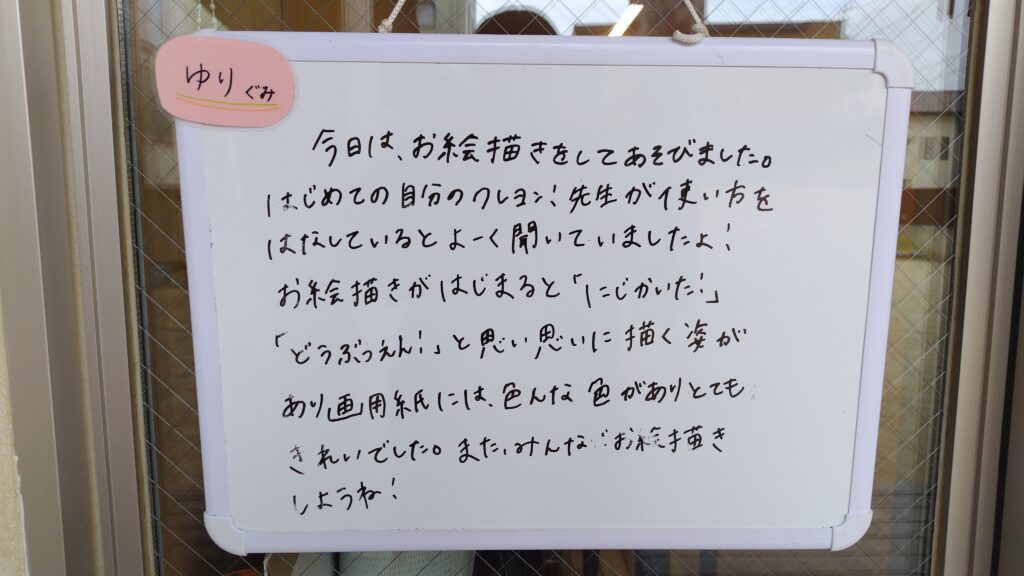 ゆりぐみ
今日は、お絵描きをしてあそびました。
はじめての自分のクレヨン！先生が使い方を
はなしているとよーく聞いていましたよ！
お絵描きがはじまると「にじかいた！」
「どうぶつえん！」と思い思いに描く姿が
あり画用紙には、色んな色がありとても
きれいでした。また、みんなでお絵描き
しようね！